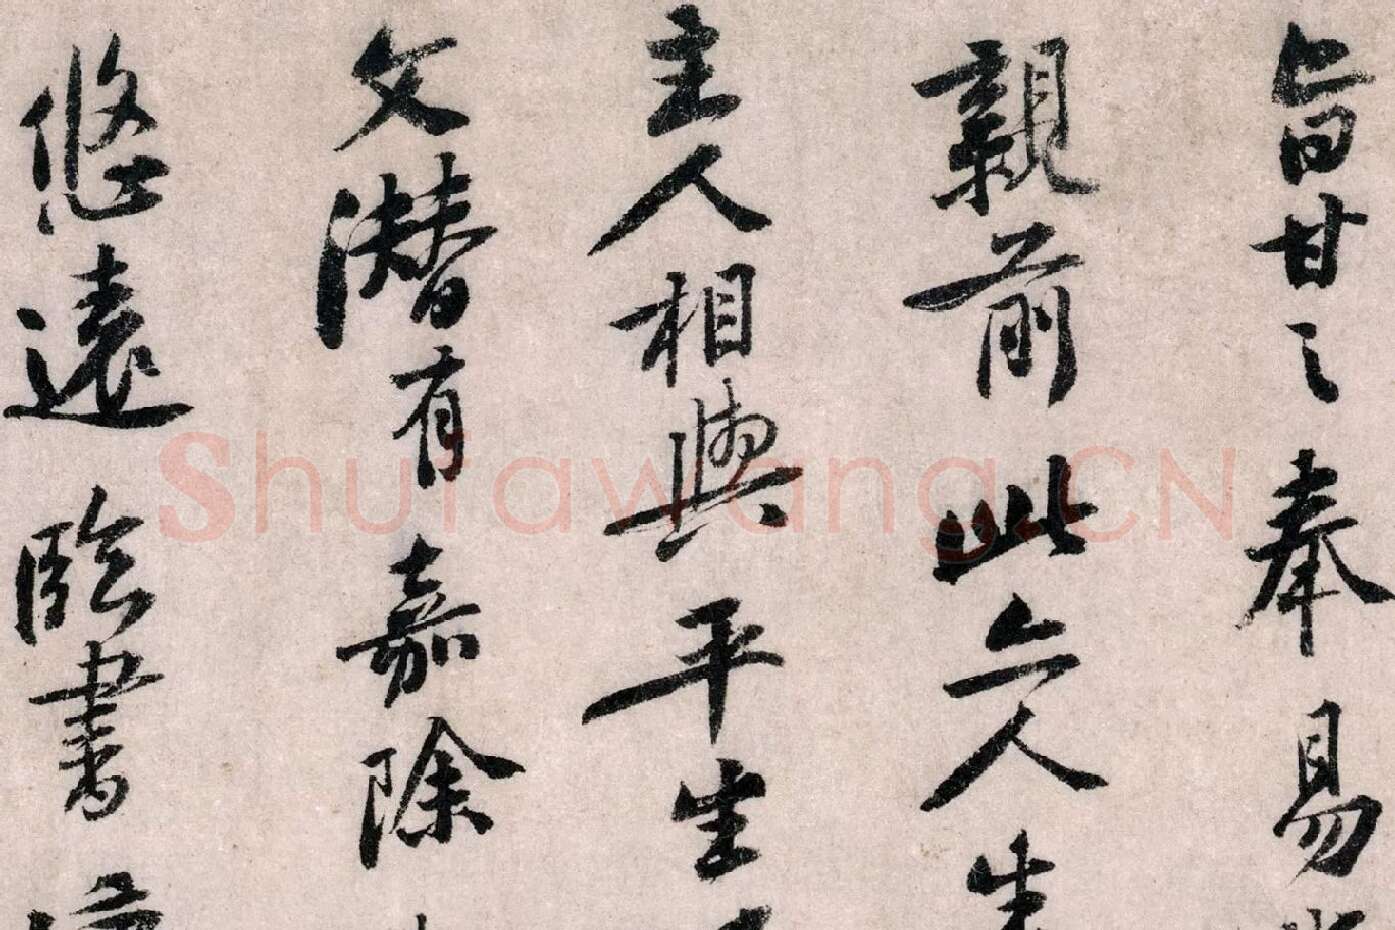 旨甘之奉易
親前此亦人生
主人相與平生
文潛有嘉除
悠遠臨書
Shufawang.CN